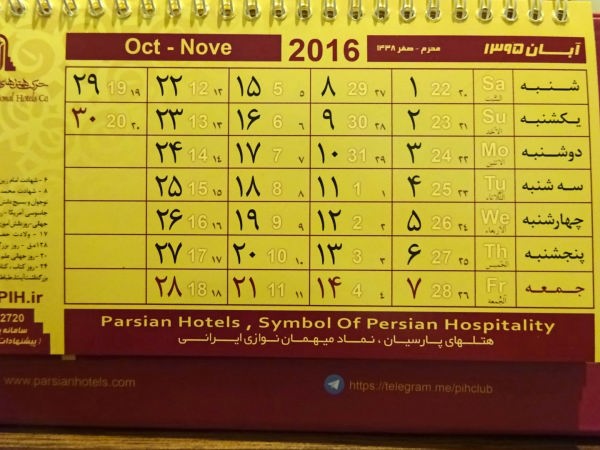 آبان ۱۳۹۵ محرم - صفر ۱۴۳۸ 2016 Oct - Nove
شنبه Sa السّبت ۱ 22 ۲۰ ۸ 29 ۲۷ ۱۵ 5 ۵ ۲۲ 12 ۱۲ ۲۹ 19 ۱۹
یکشنبه Su الأحد ۲ 23 ۲۱ ۹ 30 ۲۸ ۱۶ 6 ۶ ۲۳ 13 ۱۳ ۳۰ 20 ۲۰
دوشنبه Mo ۳ 24 ۲۲ ۱۰ 31 ۲۹ ۱۷ 7 ۷ ۲۴ 14 ۱۴
سه شنبه Tu ۴ 25 ۲۳ ۱۱ 1 ۱ ۱۸ 8 ۸ ۲۵ 15 ۱۵
چهارشنبه We ۵ 26 ۲۴ ۱۲ 2 ۲ ۱۹ 9 ۹ ۲۶ 16 ۱۶
پنجشنبه Th الخمیس ۶ 27 ۲۵ ۱۳ 3 ۳ ۲۰ 10 ۱۰ ۲۷ 17 ۱۷
جمعه Fr الجُمعة ۷ 28 ۲۶ ۱۴ 4 ۴ ۲۱ 11 ۱۱ ۲۸ 18 ۱۸
onal Hotels Co
PIH.ir
2720
سامانه پیا
Parsian Hotels , Symbol Of Persian Hospitality
هتلهای پارسیان ، نماد میهمان نوازی ایرانی
www.parsianhotels.com
https://telegram.me/pihclub